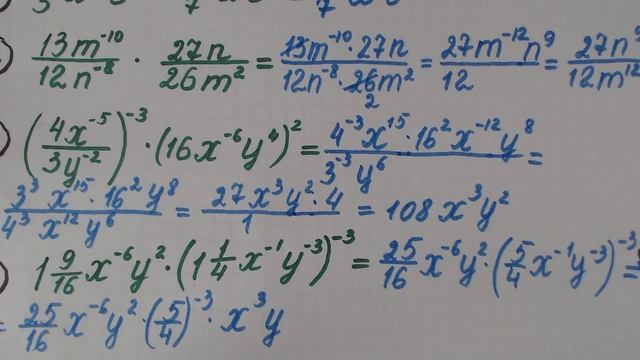 13m⁻¹⁰/12n⁻⁸ · 27n/26m² = 13m⁻¹⁰·27n/12n⁻⁸·26m² 2 = 27m⁻¹²n⁹/12 = 27n⁹/12m¹²
) (4x⁻⁵/3y⁻²)⁻³ · (16x⁻⁶y⁴)² = 4⁻³x¹⁵·16²x⁻¹²y⁸/3⁻³y⁶ =
3³x¹⁵·16²y⁸/4³x¹²y⁶ = 27x³y²·4/1 = 108x³y²
) 1 9/16 x⁻⁶y²·(1 1/4 x⁻¹y⁻³)⁻³ = 25/16 x⁻⁶y²·(5/4 x⁻¹y⁻³)⁻³ =
= 25/16 x⁻⁶y²·(5/4)⁻³·x³y